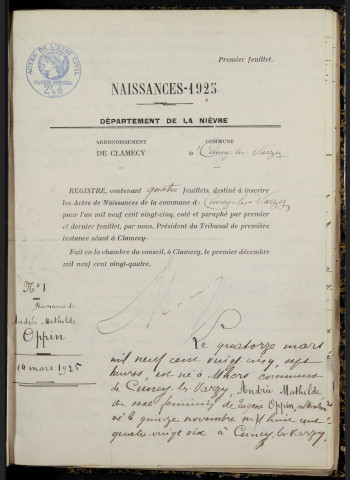 Premier feuillet.
ACTES DE L'ÉTAT CIVIL
PAPIER SPÉCIAL
NAISSANCES-1925
DÉPARTEMENT DE LA NIÈVRE
ARRONDISSEMENT
DE CLAMECY
COMMUNE
D Cuncy-les-Varzy
REGISTRE, contenant quatre feuillets, destiné à inscrire
les Actes de Naissances de la commune de Cuncy-les-Varzy
pour l'an mil neuf cent vingt-cinq, coté et paraphé par premier
et dernier feuillet, par nous, Président du Tribunal de première
instance séant à Clamecy.
Fait en la chambre du conseil, à Clamecy, le premier décembre
mil neuf cent vingt-quatre.
N° 1
Naissance de
Andrée Mathilde
Oppin
14 mars 1925
Le quatorze mars
mil neuf cent vingt cinq, sept
heures, est né à Mhers commune
de Cuncy-les-Varzy, Andrée Mathilde
du sexe féminin de Eugène Oppin, cultivateur
né le quinze novembre mil huit cent
quatre vingt six à Cuncy-les-Varzy,